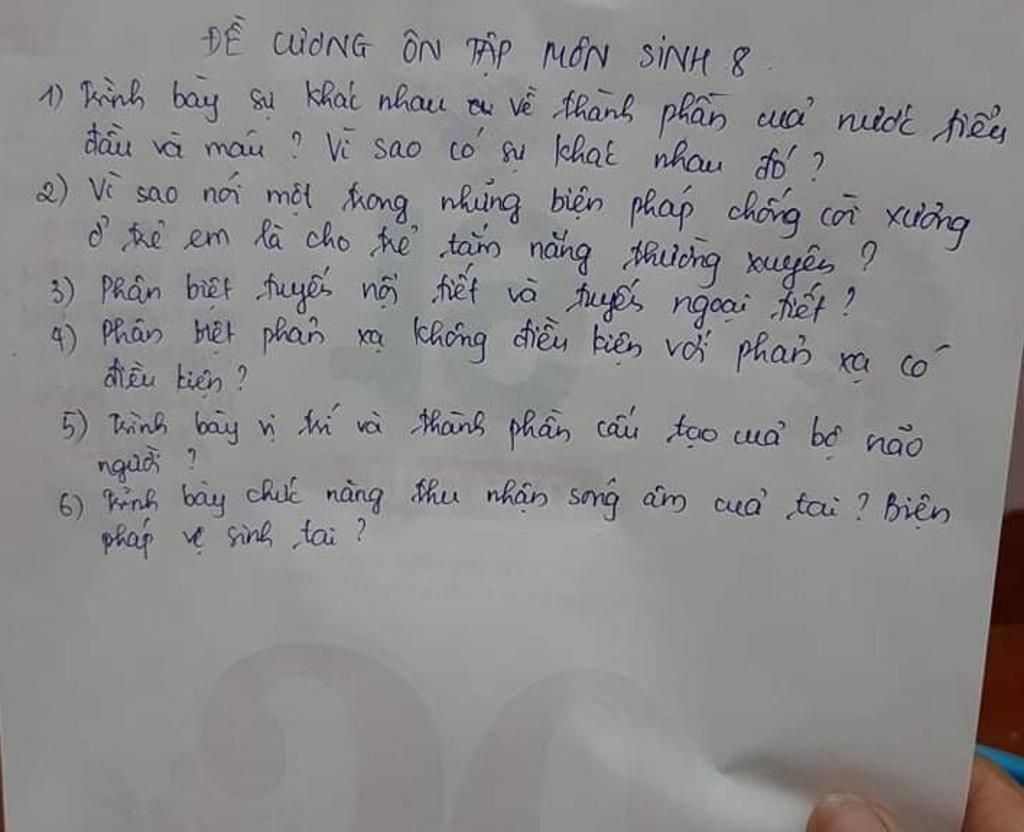 ĐỀ CƯƠNG ÔN TẬP MÔN SINH 8
1) Trình bày sự khác nhau về thành phần của nước tiểu
đầu và máu ? Vì sao có sự khác nhau đó ?
2) Vì sao nói một trong những biện pháp chống còi xương
ở trẻ em là cho trẻ tắm nắng thường xuyên ?
3) Phân biệt tuyến nội tiết và tuyến ngoại tiết ?
4) Phân biệt phản xạ không điều kiện với phản xạ có
điều kiện ?
5) Trình bày vị trí và thành phần cấu tạo của bộ não
người ?
6) Trình bày chức năng thu nhận sóng âm của tai ? Biện
pháp vệ sinh tai ?